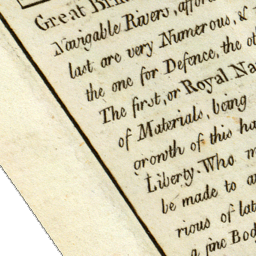 Great Brit
Navigable Rivers, affor
last are very Numerous, &
the one for Defence, the ot
The first, or Royal Na
of Materials, being
growth of this ha
Liberty. Who m
be made to a
rious of lat
a fine Bod